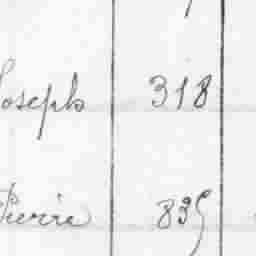 Joseph 318
Pierre 835